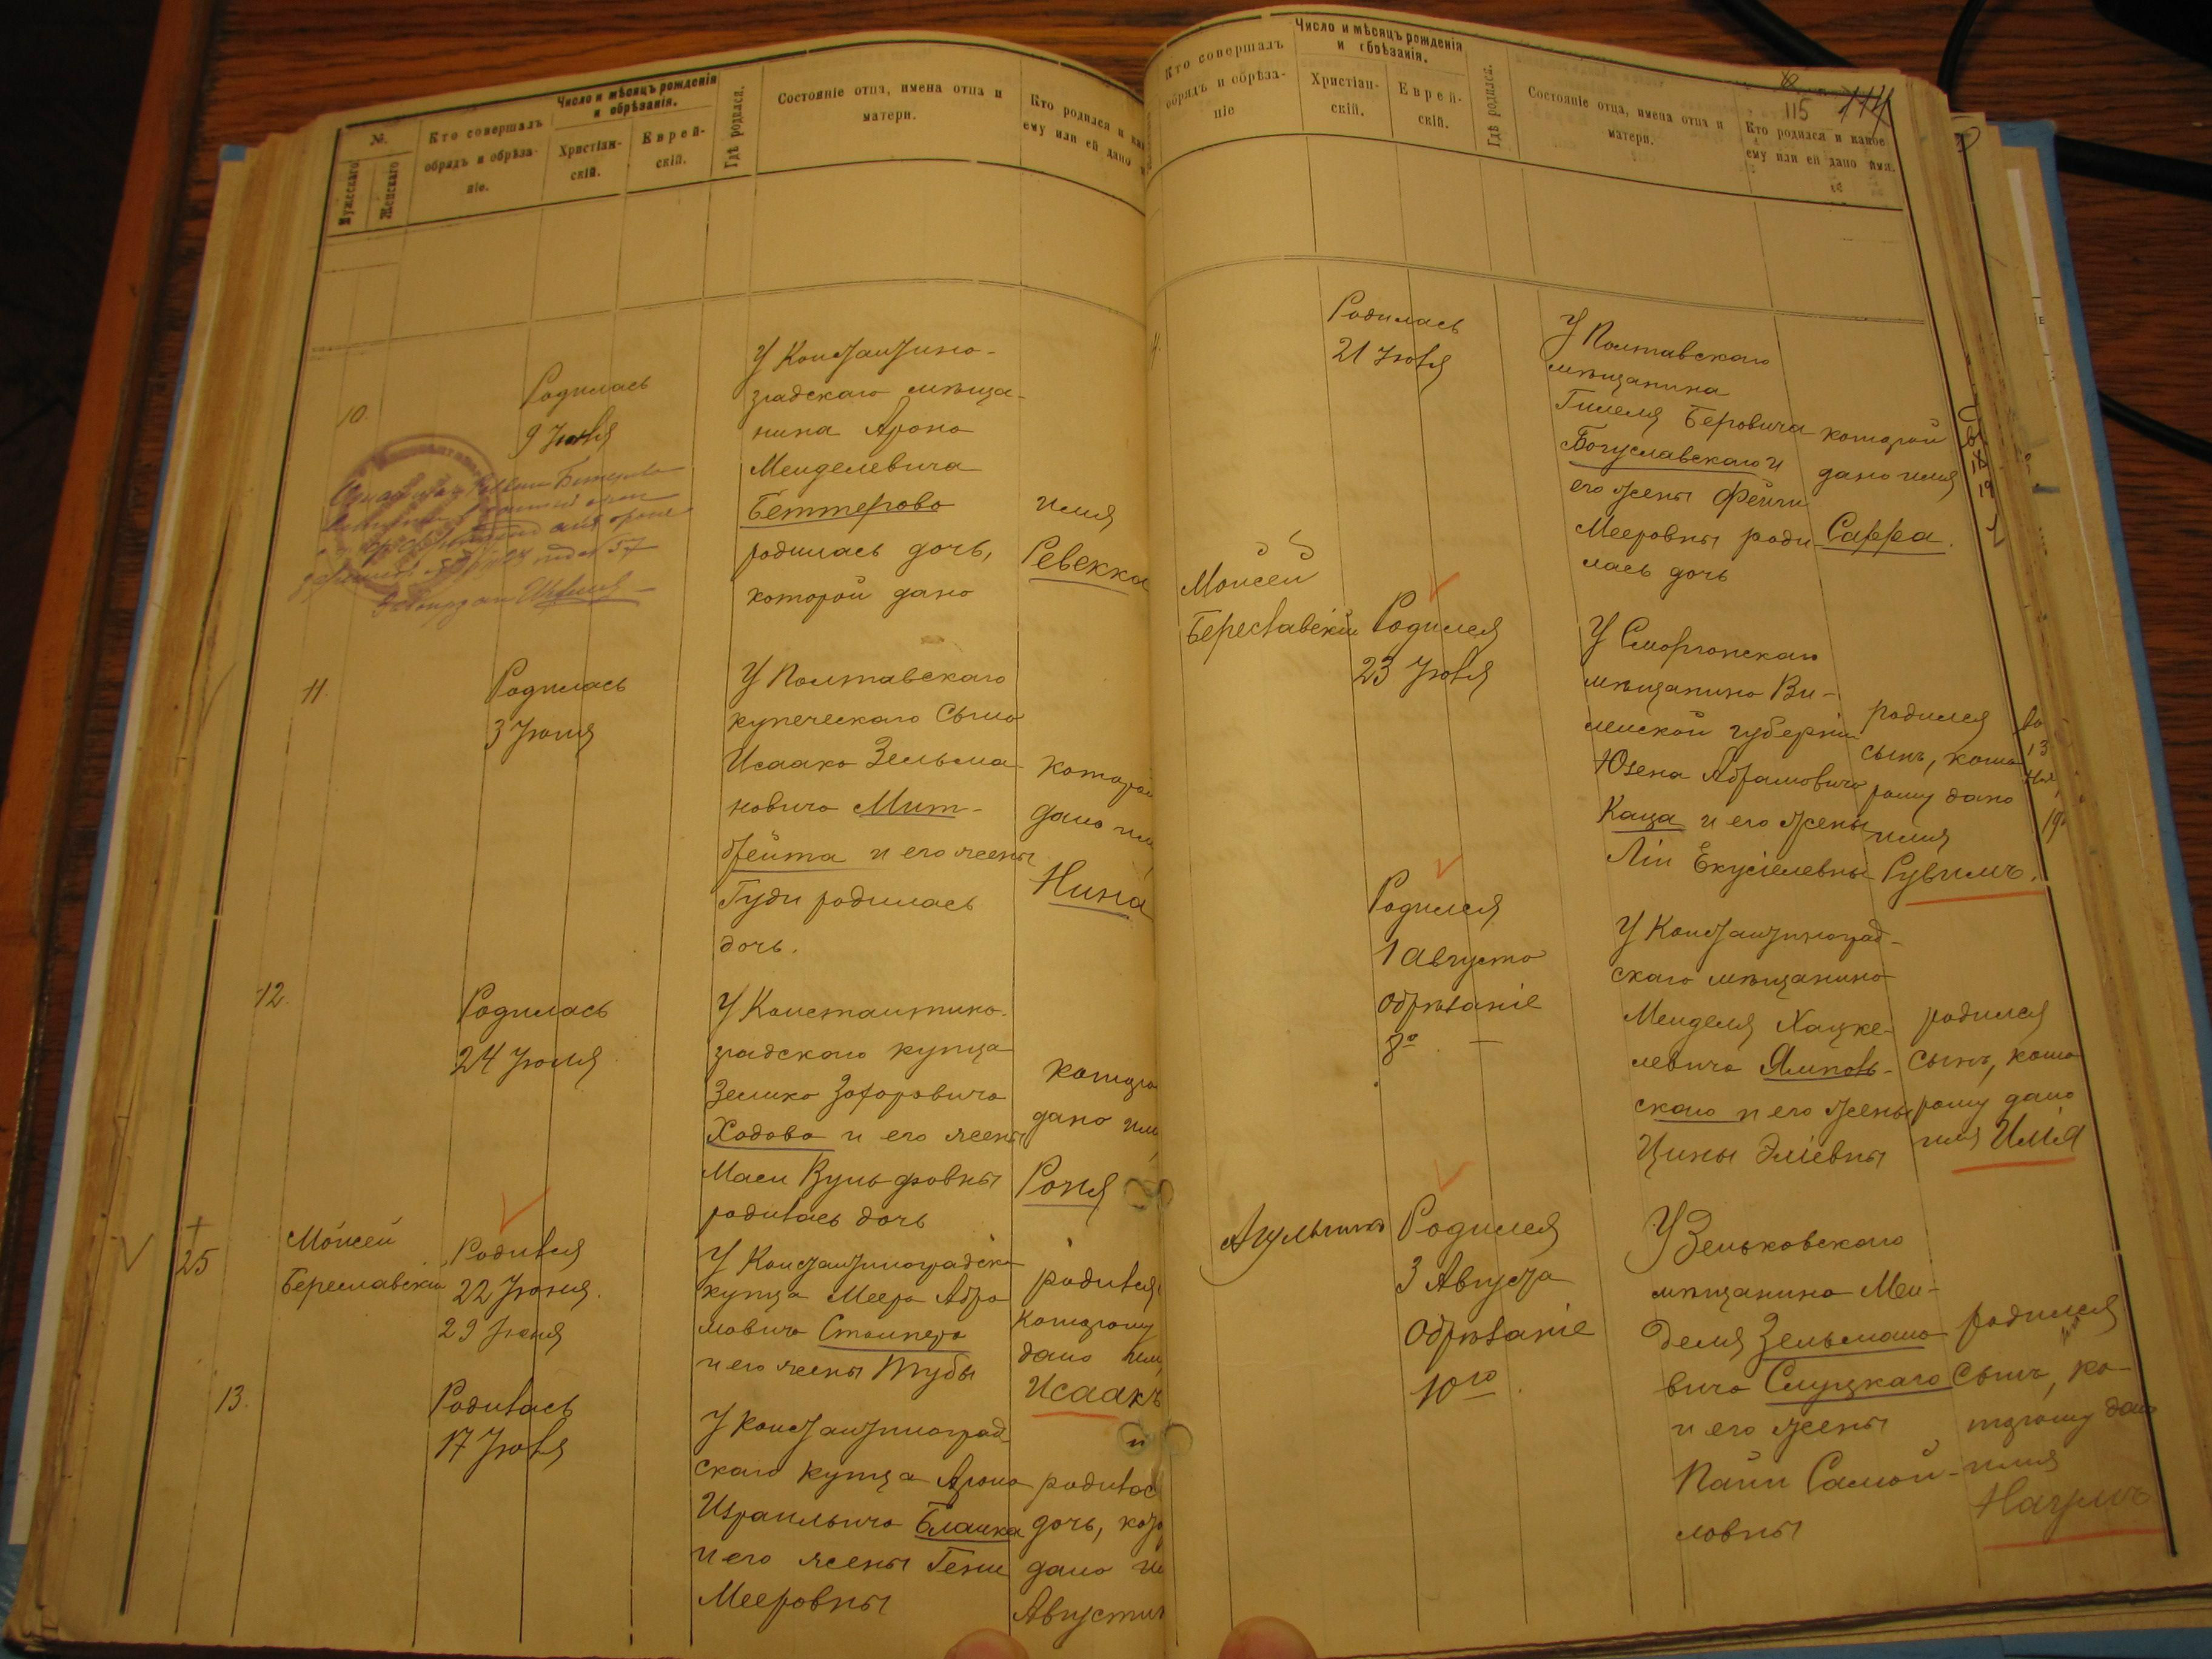 №.
Мужескаго
Женскаго
Кто совершалъ
обрядъ и обрѣза-
ніе.
Число и мѣсяцъ рожденія
и обрѣзанія.
Христіан-
скій.
Еврей-
скій.
Гдѣ родился.
Состояніе отца, имена отца и
матери.
Кто родился и как
ему или ей дано
10.
Родилась
9 Июля
У Константино-
градскаго мѣща-
нина Арона
Менделевича
Беттерова
родилась дочь,
которой дано
имя
Ревекка
11.
Родилась
3 Июля
У Полтавскаго
купеческаго сына
Исаака Зельма-
новича Мит-
брейта и его жены
Гуди родилась
дочь.
которой
дано имя
Нина
12.
Родилась
24 Июля
У Константино-
градскаго купца
Зелика Захаровича
Ходова и его жены
Маси Вульфовны
родилась дочь
которо
дано им
Роня
25
Моисей
Береславскій
Родился
22 Июня.
29 Июня
У Константиноградск
купца Меера Абра
мовича Стомпера
и его жены Тубы
родился
которому
дано им
Исаакъ
13.
Родилась
17 Июля
У Константиноград
скаго купца Арона
Израильвича Бланка
и его жены Гени
Мееровны
родилас
дочь, кото
дано и
Августин
Кто совершалъ
обрядъ и обрѣза-
ніе
Число и мѣсяцъ рожденія
и обрѣзанія.
Христіан-
скій.
Еврей-
скій.
Гдѣ родился.
Состояніе отца, имена отца и
матери.
115
114
Кто родился и какое
ему или ей дано имя.
Родилась
21 Июля
У Полтавскаго
мѣщанина
Гилеля Беровича
Богуславскаго и
его жены Фейги
Мееровны роди
лась дочь
которой
дано имя
Сарра.
Моисей
Береславскій
Родился
23 Июля
У Сморгонскаго
мѣщанина Ви-
ленской губерніи
Абрамовича
Каца и его жены
Ліи Екусіелевны
родился
сынъ, кото
рому дано
имя
Рувимъ.
Родился
1 августа
Обрѣзаніе
8го —
У Константиноград-
скаго мѣщанина
Менделя Хацке-
левича Ямполь-
скаго и его жены
Цины Эліевны
родился
сынъ, кото
рому дано
имя Илія
Родился
3 Августа
Обрѣзаніе
10го.
У Зеньковскаго
мѣщанина Мен-
деля Зельмано
вича Слуцкаго
и его жены
Пайи Самой-
ловны
родился
сынъ, ко-
торому дано
имя
Наумъ